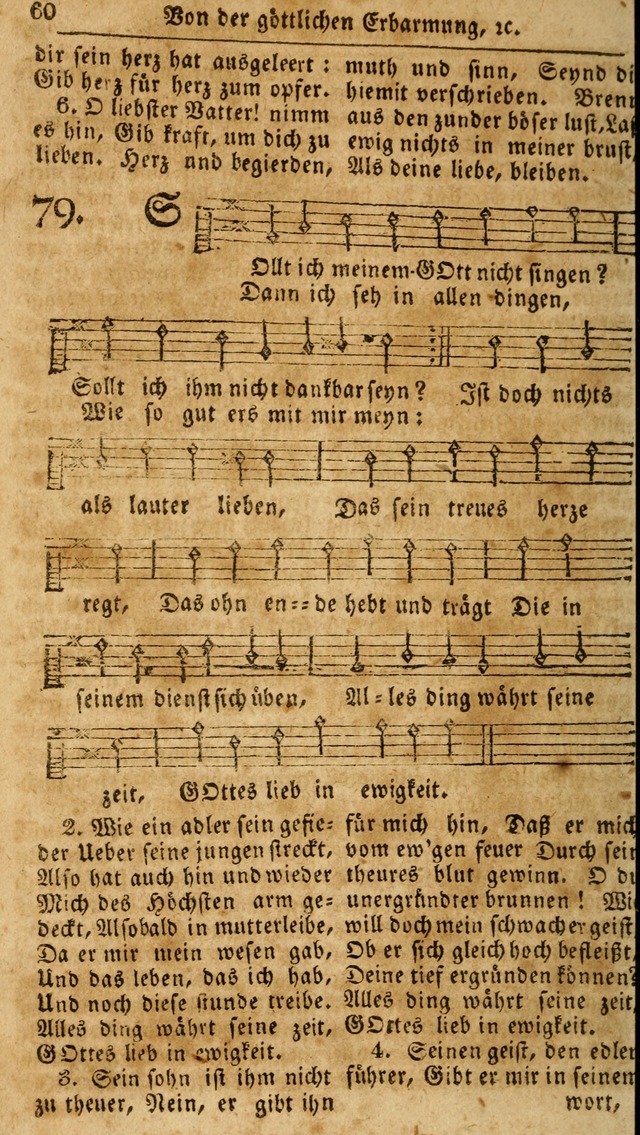 60 Von der göttlichen Erbarmung, ꝛc.
dir sein herz hat ausgeleert:
Gib herz für herz zum opfer.
6. O liebster Vatter! nimm
es hin, Gib kraft, um dich zu
lieben. Herz und begierden,
muth und sinn, Seynd
hiemit verschrieben. Brenn
aus den zunder böser lust, Laß
ewig nichts in meiner brust,
Als deine liebe, bleiben.
79. S
Ollt ich meinem GOtt nicht singen?
Dann ich seh in allen dingen,
Sollt ich ihm nicht dankbar seyn? Ist doch nichts
Wie so gut ers mit mir meyn:
als lauter lieben, Das sein treues herze
regt, Das ohn en⸗⸗de hebt und trägt Die in
seinem dienst sich üben, Al⸗les ding währt seine
zeit, GOttes lieb in ewigkeit.
2. Wie ein adler sein gefie⸗
der Ueber seine jungen streckt,
Also hat auch hin und wieder
Mich des Höchsten arm ge⸗
deckt, Alsobald in mutterleibe,
Da er mir mein wesen gab,
Und das leben, das ich hab,
Und noch diese stunde treibe.
Alles ding währt seine zeit,
GOttes lieb in ewigkeit.
3. Sein sohn ist ihm nicht
zu theuer, Nein, er gibt ihn
für mich hin, Daß er mich
vom ew'gen feuer Durch sein
theures blut gewinn. O du
unergründter brunnen! Wie
will doch mein schwacher geist,
Ob er sich gleich hoch befleißt,
Deine tief ergründen können?
Alles ding währt seine zeit,
GOttes lieb in ewigkeit.
4. Seinen geist, den edlen
führer, Gibt er mir in seinem
wort,